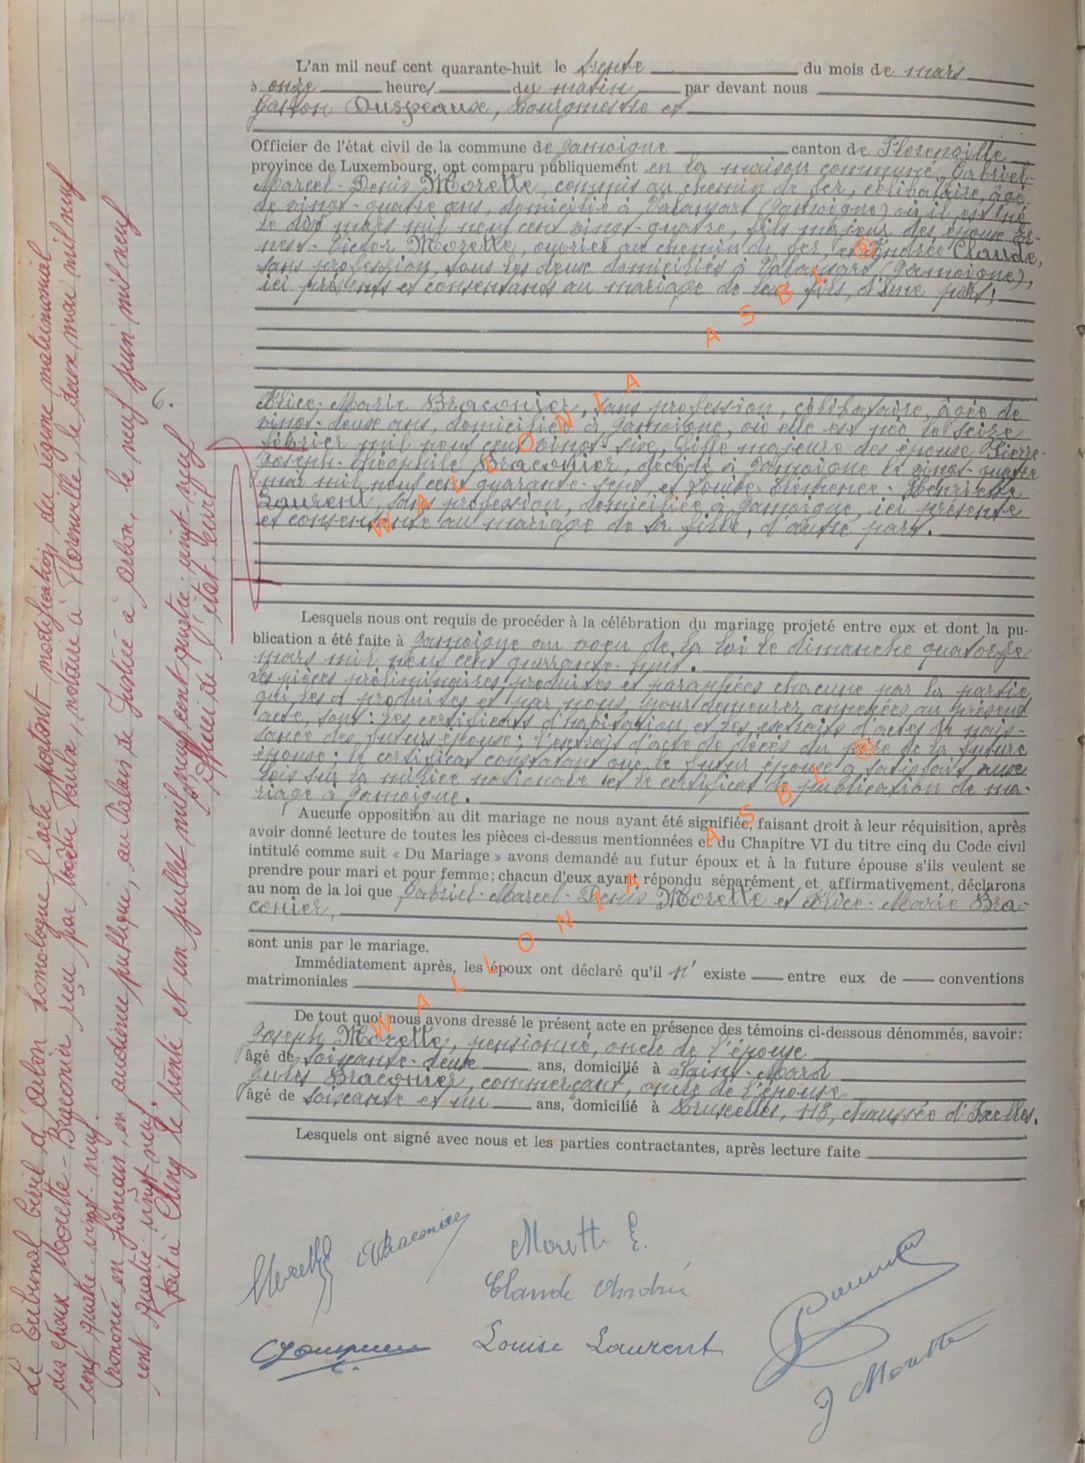 L'an mil neuf cent quarante-huit le trente du mois de mars
à onze heures du matin, par devant nous
Gaston Ouspeaux, Bourgmestre et
Officier de l'état civil de la commune de Jamoigne canton de Florenville
province de Luxembourg, ont comparu publiquement en la maison commune, Gabriel-
Marcel-Denis Morette, commis au chemin de fer, célibataire, âgé
de vingt-quatre ans, domicilié à Valansart (Jamoigne) où il est né
le dix mars mil neuf cent vingt-quatre, fils majeur des époux Er-
nest-Victor Morette, ouvrier au chemin de fer, et Andrée Claude,
sans profession, tous les deux domiciliés à Valansart, (Jamoigne),
ici présents et consentants au mariage de leur fils, d'une part;
6.
Alice-Marie Braconier, sans profession, célibataire, âgée de
vingt-deux ans, domiciliée à Jamoigne, où elle est née le seize
février mil neuf cent vingt-six, fille majeure des époux Pierre-
Joseph-Théophile Braconier, décédé à Jamoigne le vingt-quatre
mai mil neuf cent quarante-sept et Louise-Clémence-Henriette
Laurent, sans profession, domiciliée à Jamoigne, ici présente
et consentante au mariage de sa fille, d'autre part.
Lesquels nous ont requis de procéder à la célébration du mariage projeté entre eux et dont la pu-
blication a été faite à Jamoigne au voeu de la loi le dimanche quatorze
mars mil neuf cent quarante-huit.
Les pièces préliminaires, produites et paraphées chacune par la partie
qui les a produites et par nous, pour demeurer annexées au présent
acte, sont: les certificats d'habitation et les extraits d'actes de nais-
sance des futurs époux; l'extrait d'acte de décès du père de la future
épouse; le certificat constatant que le futur époux a satisfait aux
lois sur la milice nationale et le certificat de publication de ma-
riage à Jamoigne.
Aucune opposition au dit mariage ne nous ayant été signifiée, faisant droit à leur réquisition, après
avoir donné lecture de toutes les pièces ci-dessus mentionnées et du Chapitre VI du titre cinq du Code civil
intitulé comme suit « Du Mariage » avons demandé au futur époux et à la future épouse s'ils veulent se
prendre pour mari et pour femme; chacun d'eux ayant répondu séparément et affirmativement, déclarons
au nom de la loi que Gabriel-Marcel-Denis Morette et Alice-Marie Bra-
conier,
sont unis par le mariage.
Immédiatement après, les époux ont déclaré qu'il n' existe entre eux de conventions
matrimoniales
De tout quoi nous avons dressé le présent acte en présence des témoins ci-dessous dénommés, savoir:
Joseph Morette, pensionné, oncle de l'épouse
âgé de soixante-deux ans, domicilié à Saint-Mard
Jules Braconier, commerçant, oncle de l'épouse
âgé de soixante et un ans, domicilié à Bruxelles, 113, chaussée d'Ixelles.
Lesquels ont signé avec nous et les parties contractantes, après lecture faite
Morette ABraconier Morette E.
Claude Andrée
Louise Laurent
J Morette
Le tribunal Civil d'Arlon homologue l'acte portant modification du régime matrimonial
des époux Morette-Braconier reçu par Maître notaire à Florenville, le deux mai mil neuf
cent quatre-vingt-neuf.
Prononcé en français, en audience publique, au Palais de Justice à Arlon, le neuf juin mil neuf
cent quatre vingt-neuf.
Fait à Chiny le trente et un juillet mil neuf cent quatre-vingt-neuf
L'Officier de l'état-civil
WALLONIA ASBL ®
WALLONIA ASBL ®